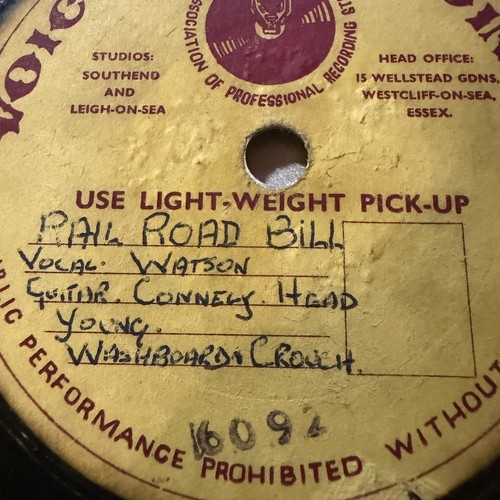 VOIC
ASSOCIATION OF PROFESSIONAL RECORDING
STUDIOS:
SOUTHEND
AND
LEIGH-ON-SEA
HEAD OFFICE:
15 WELLSTEAD GDNS,
WESTCLIFF-ON-SEA,
ESSEX.
USE LIGHT-WEIGHT PICK-UP
RAIL ROAD BILL
VOCAL. WATSON
GUITAR. CONNELY. HEAD
YOUNG.
WASHBOARD. CROUCH.
16092
BLIC PERFORMANCE PROHIBITED WITHOUT